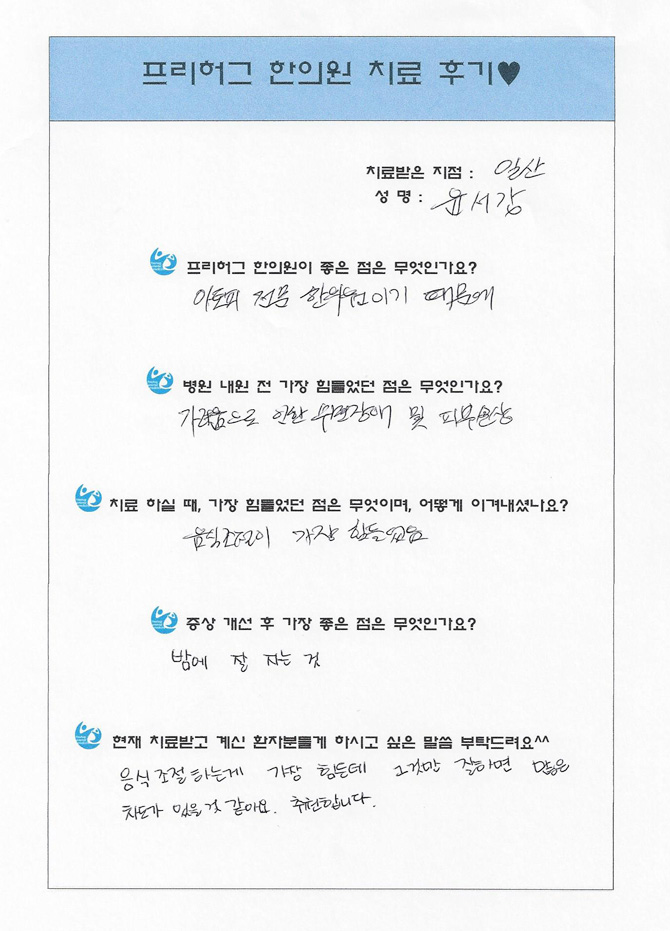 프리허그 한의원 치료 후기♥
치료받은 지점 : 일산
성 명 : 윤서강
프리허그 한의원이 좋은 점은 무엇인가요?
아토피 전문 한의원이기 때문에
병원 내원 전 가장 힘들었던 점은 무엇인가요?
가려움으로 인한 수면장애 및 피부손상
치료 하실 때, 가장 힘들었던 점은 무엇이며, 어떻게 이겨내셨나요?
음식조절이 가장 힘들었음
증상 개선 후 가장 좋은 점은 무엇인가요?
밤에 잘 자는 것
현재 치료받고 계신 환자분들게 하시고 싶은 말씀 부탁드려요^^
음식조절하는게 가장 힘든데 그것만 잘하면 많은
차도가 있을것 같아요. 추천합니다.